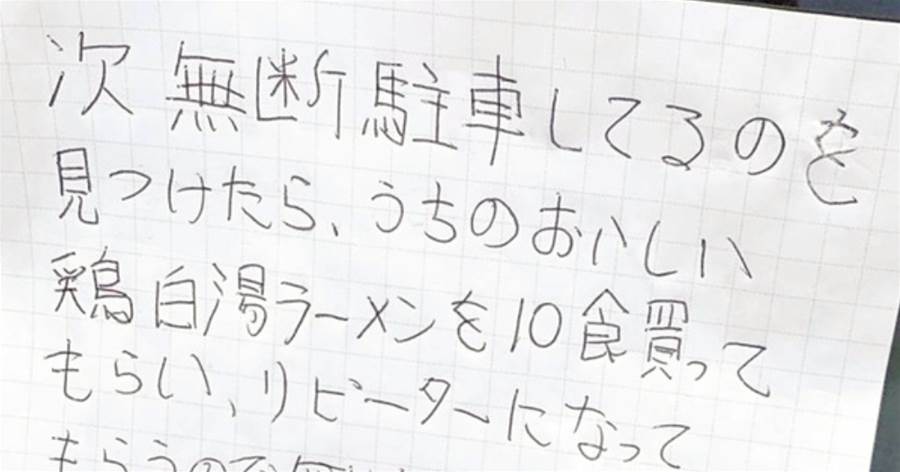 次無断駐車してるのを
見つけたら、うちのおいしい
鶏白湯ラーメンを10食買って
もらい、リピーターになって
もらうので